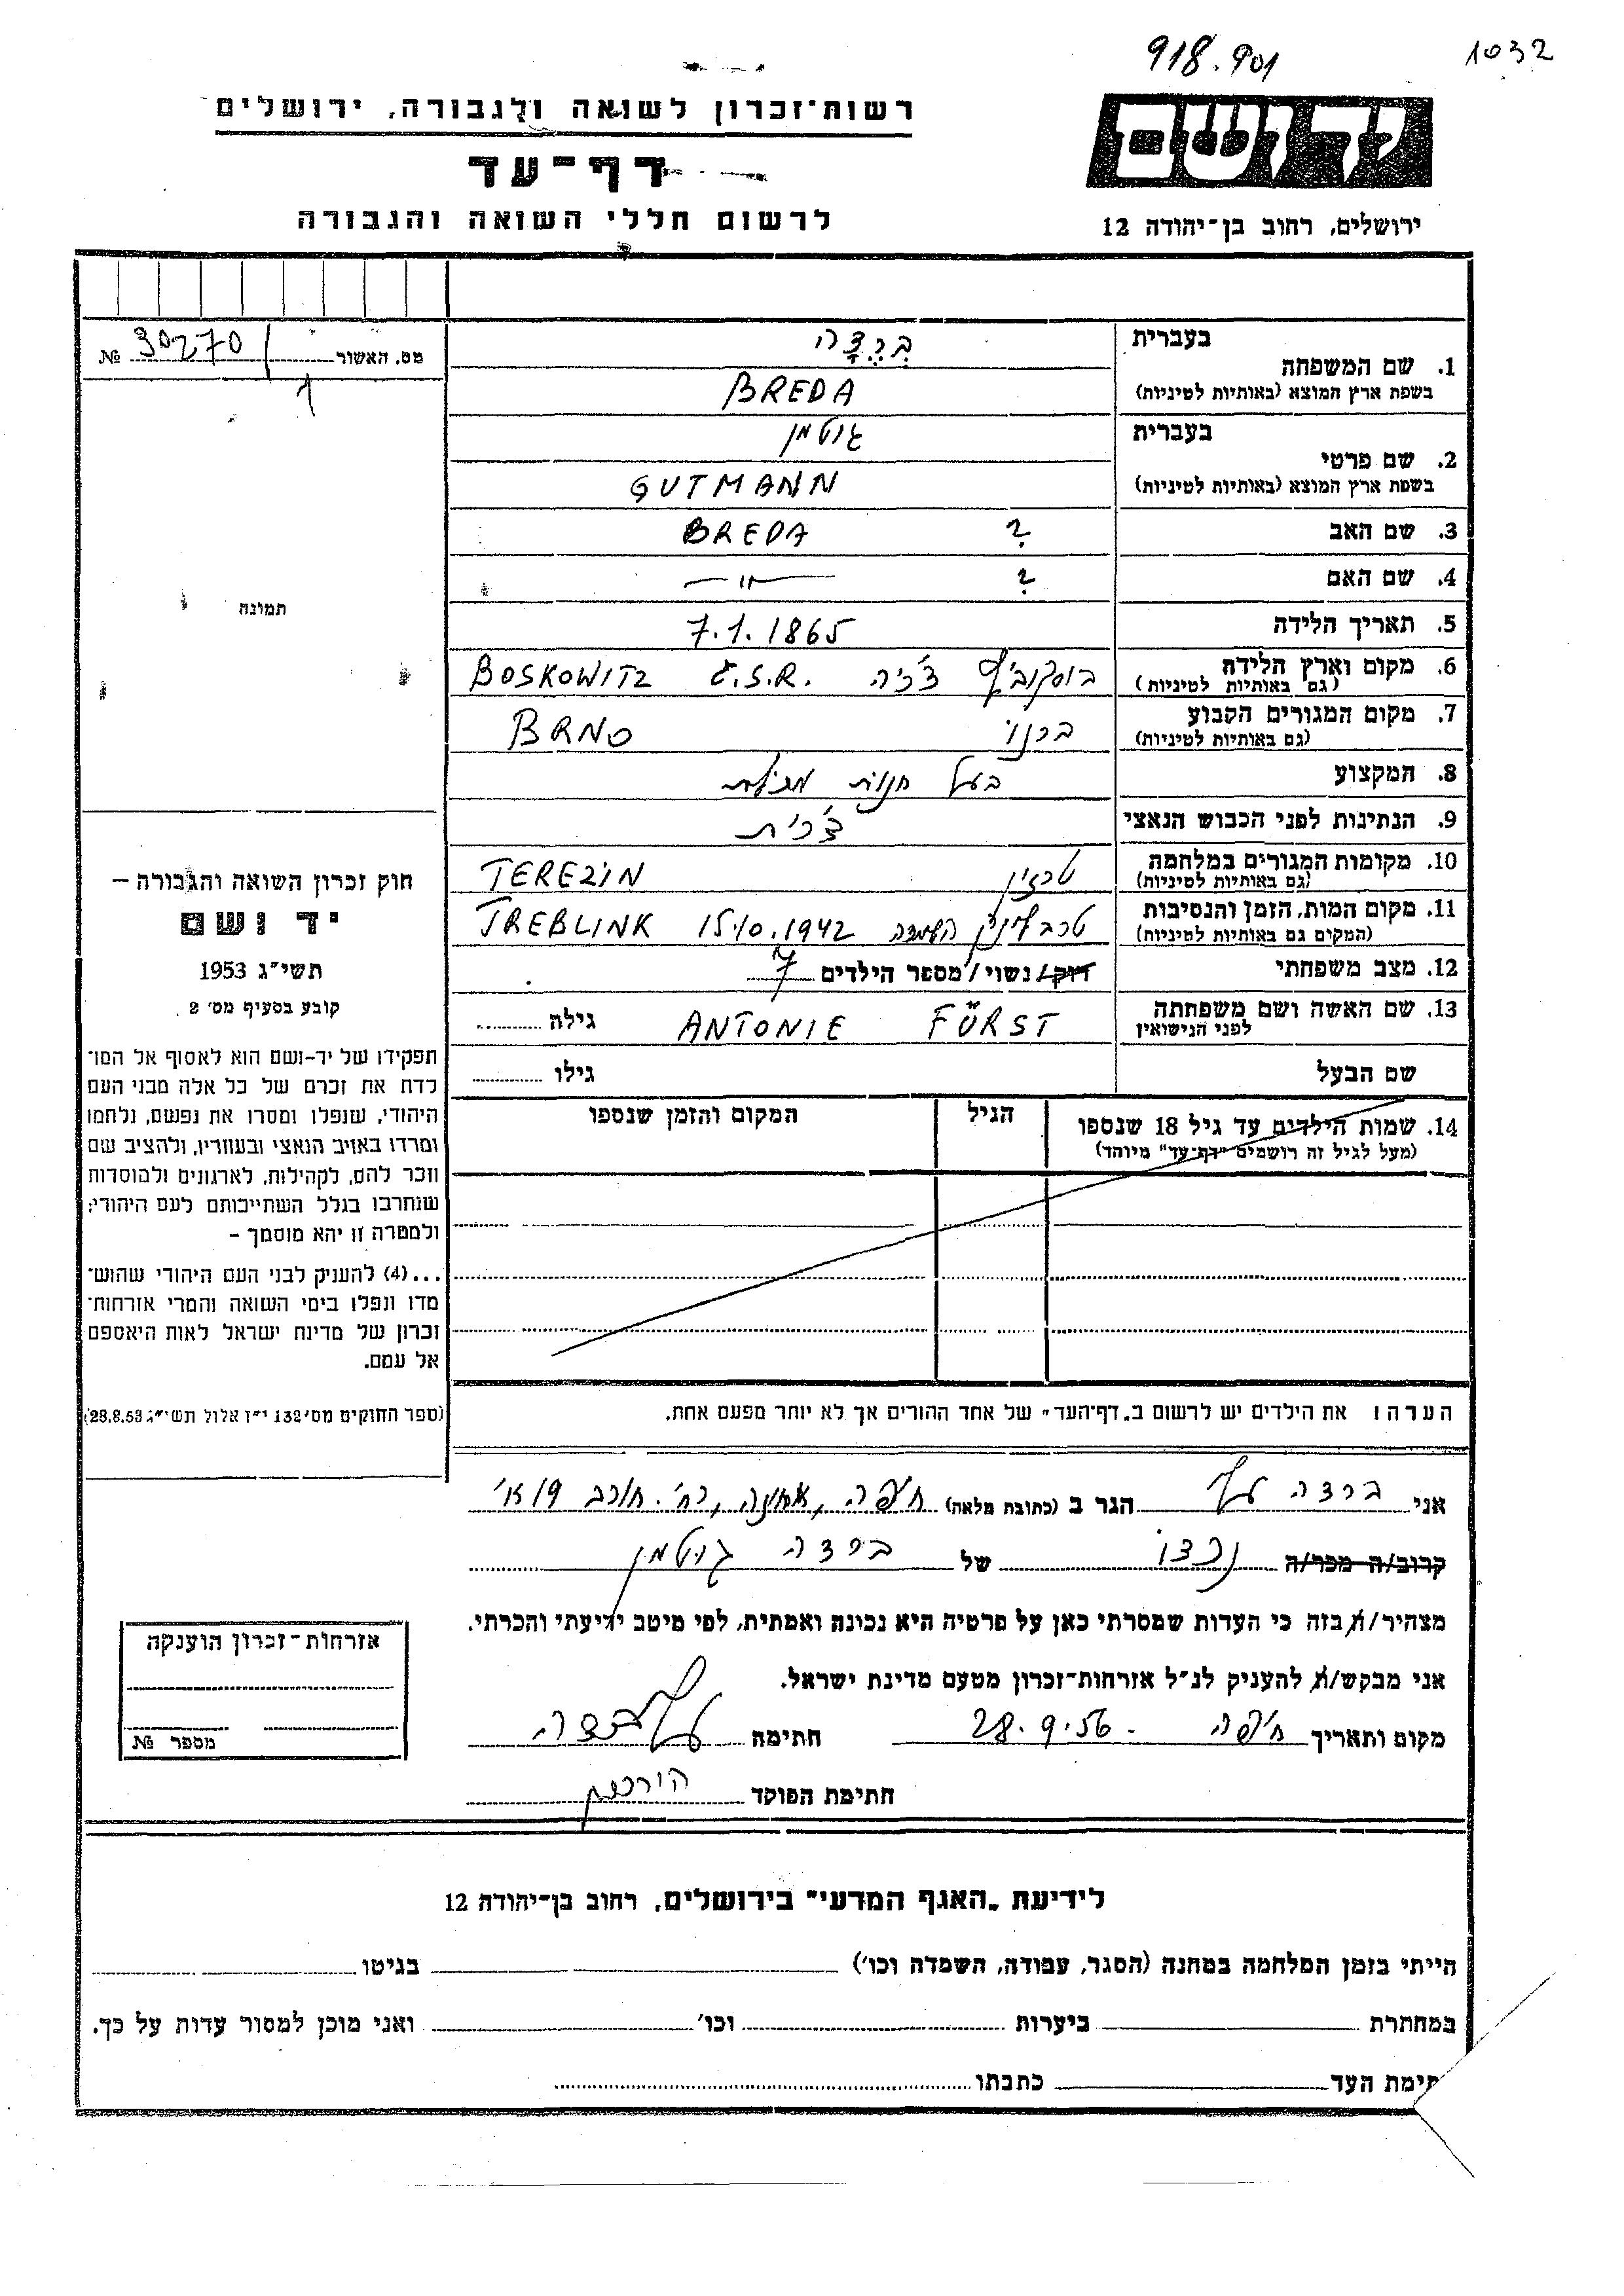 918.901
1032
רשות־זכרון לשואה ולגבורה, ירושלים
דף־עד
לרשום חללי השואה והגבורה
ידושם
ירושלים, רחוב בן־יהודה 12
מס. האשור 30270 №
1
תמונה
בעברית ברצדה
1. שם המשפחה
בשפת ארץ המוצא (באותיות לטיניות) BREDA
בעברית גוטמן
2. שם פרטי
בשפת ארץ המוצא (באותיות לטיניות) GUTMANN
3. שם האב ? BREDA
4. שם האם ? —״—
5. תאריך הלידה 7.1.1865
6. מקום וארץ הלידה (גם באותיות לטיניות) בוסקוביץ צ'כיה BOSKOWITZ Č.S.R.
7. מקום המגורים הקבוע (גם באותיות לטיניות) ברנו BRNO
8. המקצוע בעל חנות
9. הנתינות לפני הכבוש הנאצי צ'כית
10. מקומות המגורים במלחמה (גם באותיות לטיניות) טרזין TEREZIN
11. מקום המות, הזמן והנסיבות (המקום גם באותיות לטיניות) טרבלינק השמדה 15.10.1942 TREBLINK
12. מצב משפחתי רוק/נשוי/מספר הילדים 7
13. שם האשה ושם משפחתה לפני הנישואין ANTONIE FÜRST גילה
שם הבעל גילו
14. שמות הילדים עד גיל 18 שנספו
(מעל לגיל זה רושמים "דף־עד" מיוחד)
הגיל
המקום והזמן שנספו
חוק זכרון השואה והגבורה –
יד ושם
תשי"ג 1953
קובע בסעיף מס׳ 2
תפקידו של יד-ושם הוא לאסוף אל המו־
לדת את זכרם של כל אלה מבני העם
היהודי, שנפלו ומסרו את נפשם, נלחמו
ומרדו באויב הנאצי ובעוזריו, ולהציב שם
וזכר להם, לקהילות, לארגונים ולמוסדות
שנחרבו בגלל השתייכותם לעם היהודי;
ולמטרה זו יהא מוסמך –
...(4) להעניק לבני העם היהודי שהוש־
מדו ונפלו בימי השואה והמרי אזרחות־
זכרון של מדינת ישראל לאות היאספם
אל עמם.
(ספר החוקים מס׳ 132 י"ז אלול תשי"ג 28.8.53)
הערה: את הילדים יש לרשום ב„דף־העד" של אחד ההורים אך לא יותר מפעם אחת.
אני ברצדה הגר ב (כתובת מלאה) חיפה, אחוזה, רח'. חורב
קרוב/ה מכר/ה נכדו של ברצדה גוטמן
מצהיר/ה בזה כי העדות שמסרתי כאן על פרטיה היא נכונה ואמתית, לפי מיטב ידיעתי והכרתי.
אני מבקש/ת להעניק לנ"ל אזרחות־זכרון מטעם מדינת ישראל.
מקום ותאריך חיפה - 28.9.56 חתימה
חתימת הפוקד
אזרחות־זכרון הוענקה
מספר №
לידיעת „האגף המדעי" בירושלים, רחוב בן־יהודה 12
הייתי בזמן המלחמה במחנה (הסגר, עבודה, השמדה וכו׳) בגיטו
במחתרת ביערות וכו׳ ואני מוכן למסור עדות על כך.
תימת העד כתבתו